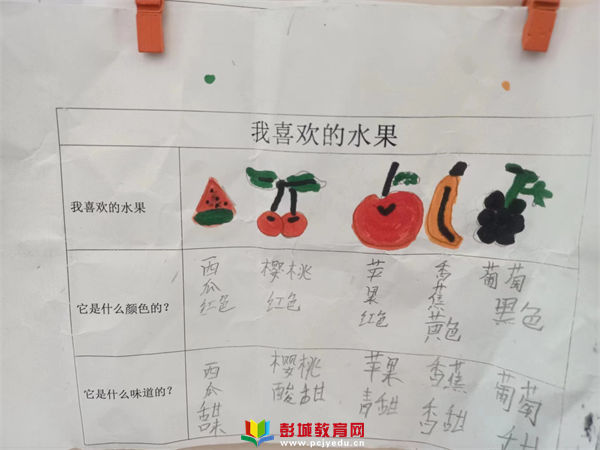 我喜欢的水果
我喜欢的水果
它是什么颜色的？
西瓜 红色
樱桃 红色
苹果 红色
香蕉 黄色
葡萄 黑色
它是什么味道的？
西瓜 甜味
樱桃 酸甜
苹果 青甜
香蕉 香甜
葡萄
彭城教育网
www.pcjyedu.cn